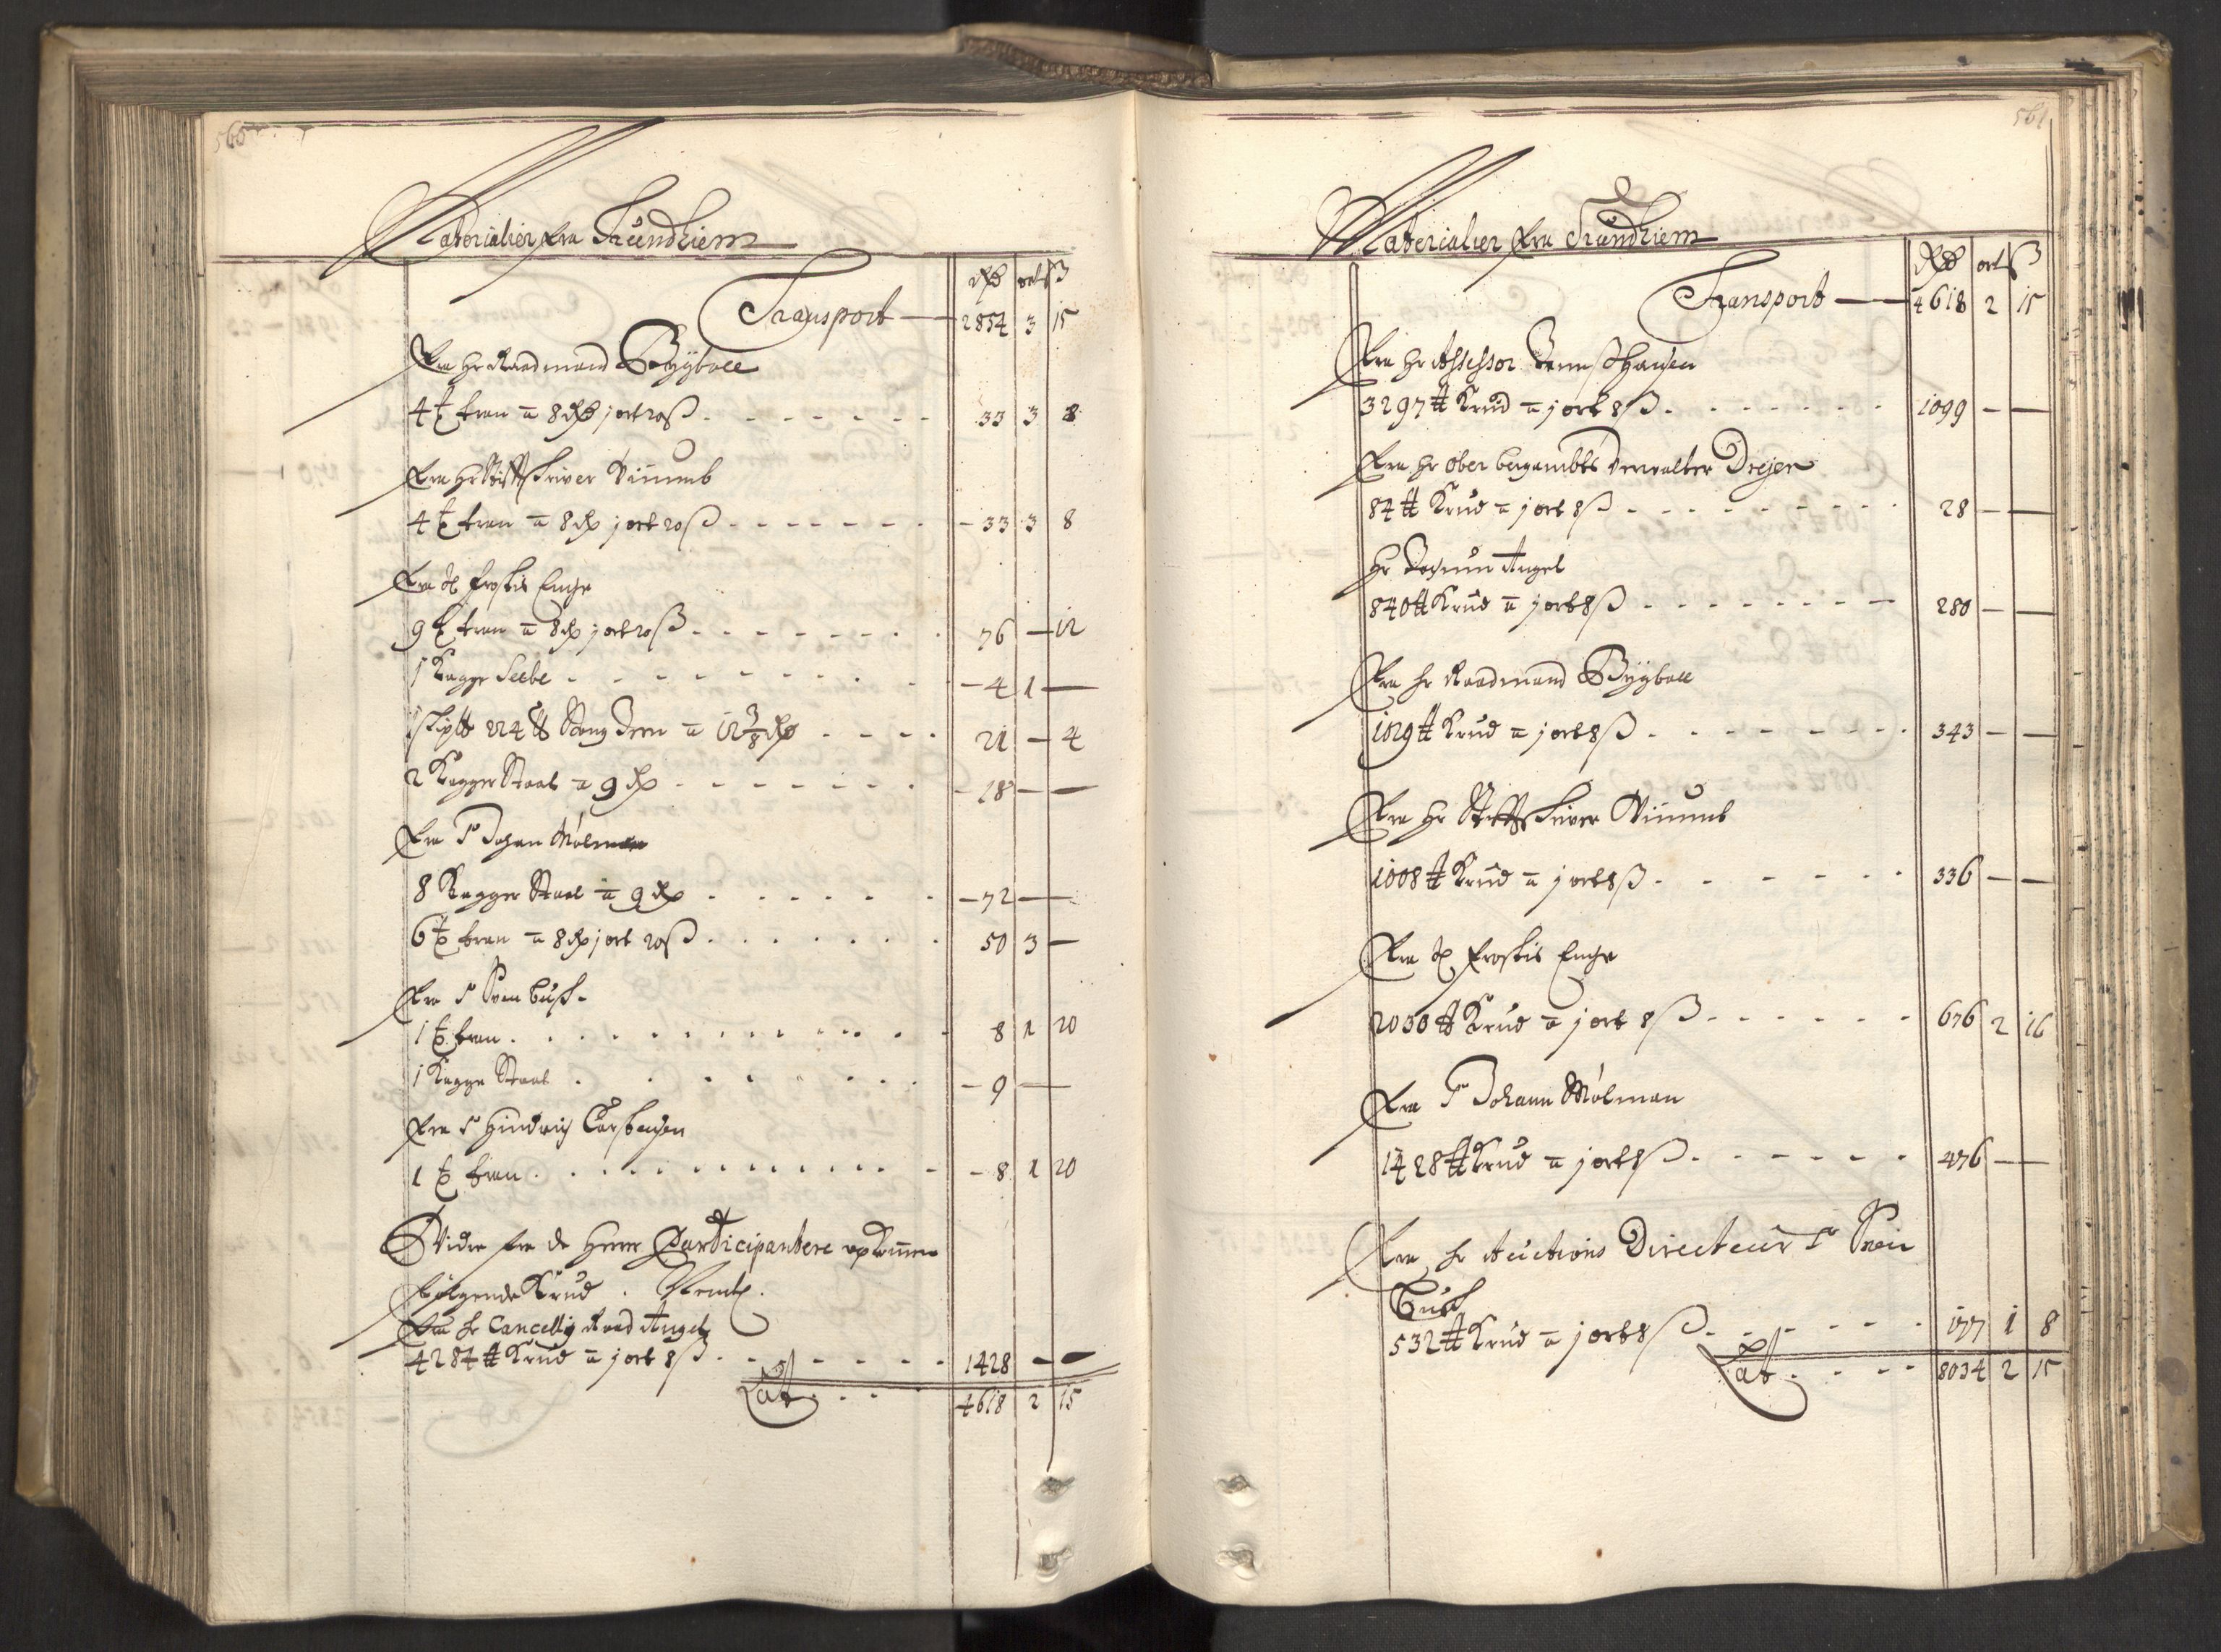 560
Materialier fra Trundhiem
Rdr ort ß
Transport — 2854 3 15
Fra Hr Raadmand Bygball
4 t tran a 8 Rdr 1 ort 20 ß - - - 33 3 8
Fra Hr Stiftskriver
4 t tran a 8 Rdr 1 ort 20 ß - - - 33 3 8
Fra Sl Hr Enche
9 t tran a 8 Rdr 1 ort 20 ß - - - 76 — 12
1 Kagge Seebe - - - 4 1 —
1 skip 224 ℔ Stang Jern a 12 3/8 Rdr - - - 21 — 4
2 Kagger Staal a 9 Rdr - - - 18 — —
Fra Sr Johan Mølman
8 Kagger Staal a 9 Rdr - - - 72 — —
6 t tran a 8 Rdr 1 ort 20 ß - - - 50 3 —
Fra Sr Sven Busk
1 t tran - - - 8 1 20
1 Kagge Staal - - - 9 — —
Fra Sr Hindrich Carstensen
1 t tran - - - 8 1 20
Vider fra de Herrer Participantere
følgende Krud . Nemlig.
Fra Hr Cancellij Raad Angel
4284 ℔ Krud a 1 ort 8 ß - - - 1428 — —
Lat - - - 4618 2 15
561
Materialier fra Trundhiem
Rdr ort ß
Transport — 4618 2 15
Fra Hr Assessor Tønnes Hansen
3297 ℔ Krud a 1 ort 8 ß - - - 1099 — —
Fra Hr Ober bergambts Dreyer
84 ℔ Krud a 1 ort 8 ß - - - 28 — —
Hr Angel
840 ℔ Krud a 1 ort 8 ß - - - 280 — —
Fra Hr Raadmand Bygball
1029 ℔ Krud a 1 ort 8 ß - - - 343 — —
Fra Hr Stiftskriver
1008 ℔ Krud a 1 ort 8 ß - - - 336 — —
Fra Sl Enche
2030 ℔ Krud a 1 ort 8 ß - - - 676 2 16
Fra Sr Johann Mølman
1428 ℔ Krud a 1 ort 8 ß - - - 476 — —
Fra Hr Auctions Directeur Sr Sven
Busk
532 ℔ Krud a 1 ort 8 ß - - - 177 1 8
Lat - - - 8034 2 15